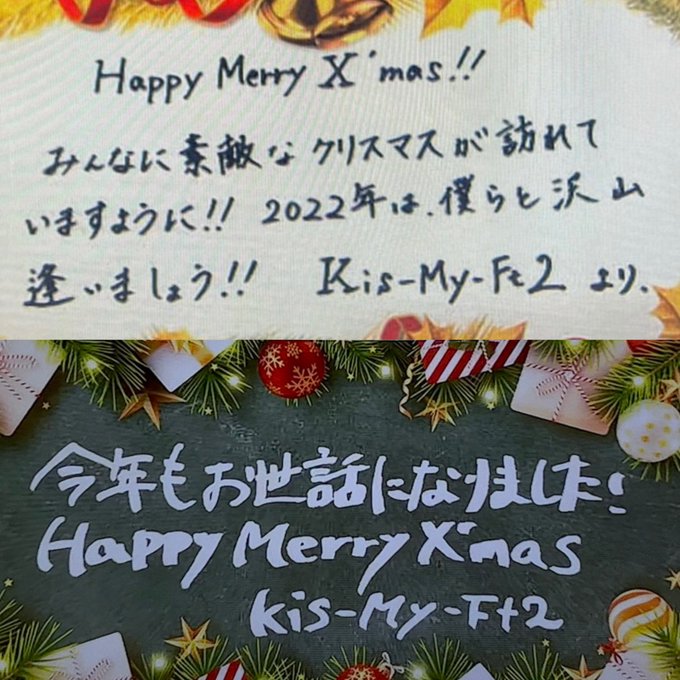 Happy Merry X'mas!!
みんなに素敵なクリスマスが訪れて
いますように!! 2022年は、僕らと沢山
逢いましょう!! Kis-My-Ft2 より、
今年もお世話になりました!
Happy Merry X'mas
Kis-My-Ft2